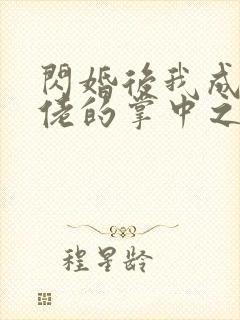 閃婚後我成
佬的掌中之
程星龄